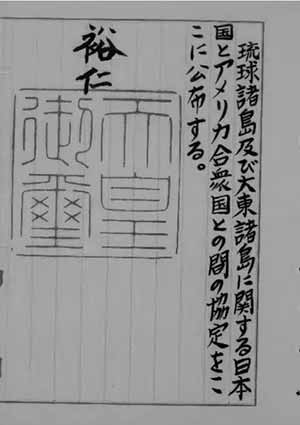 琉球諸島及び大東諸島に関する日本
国とアメリカ合衆国との間の協定をこ
こに公布する。
裕仁
天皇
御璽